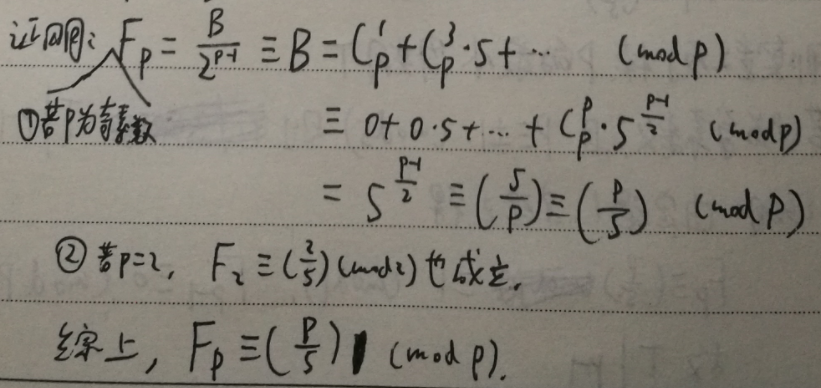 证明: F_p = B/2^{p-1} ≡ B = C_p^1 + C_p^3·5 + ··· (mod p)
①若P为奇素数 ≡ 0+0·5+···+ C_p^p·5^{(p-1)/2} (mod p)
= 5^{(p-1)/2} ≡ (5/p) ≡ (p/5) (mod p)
②若p=2, F_2 ≡ (2/5) (mod 2) 也成立.
综上, F_p ≡ (p/5) (mod p).